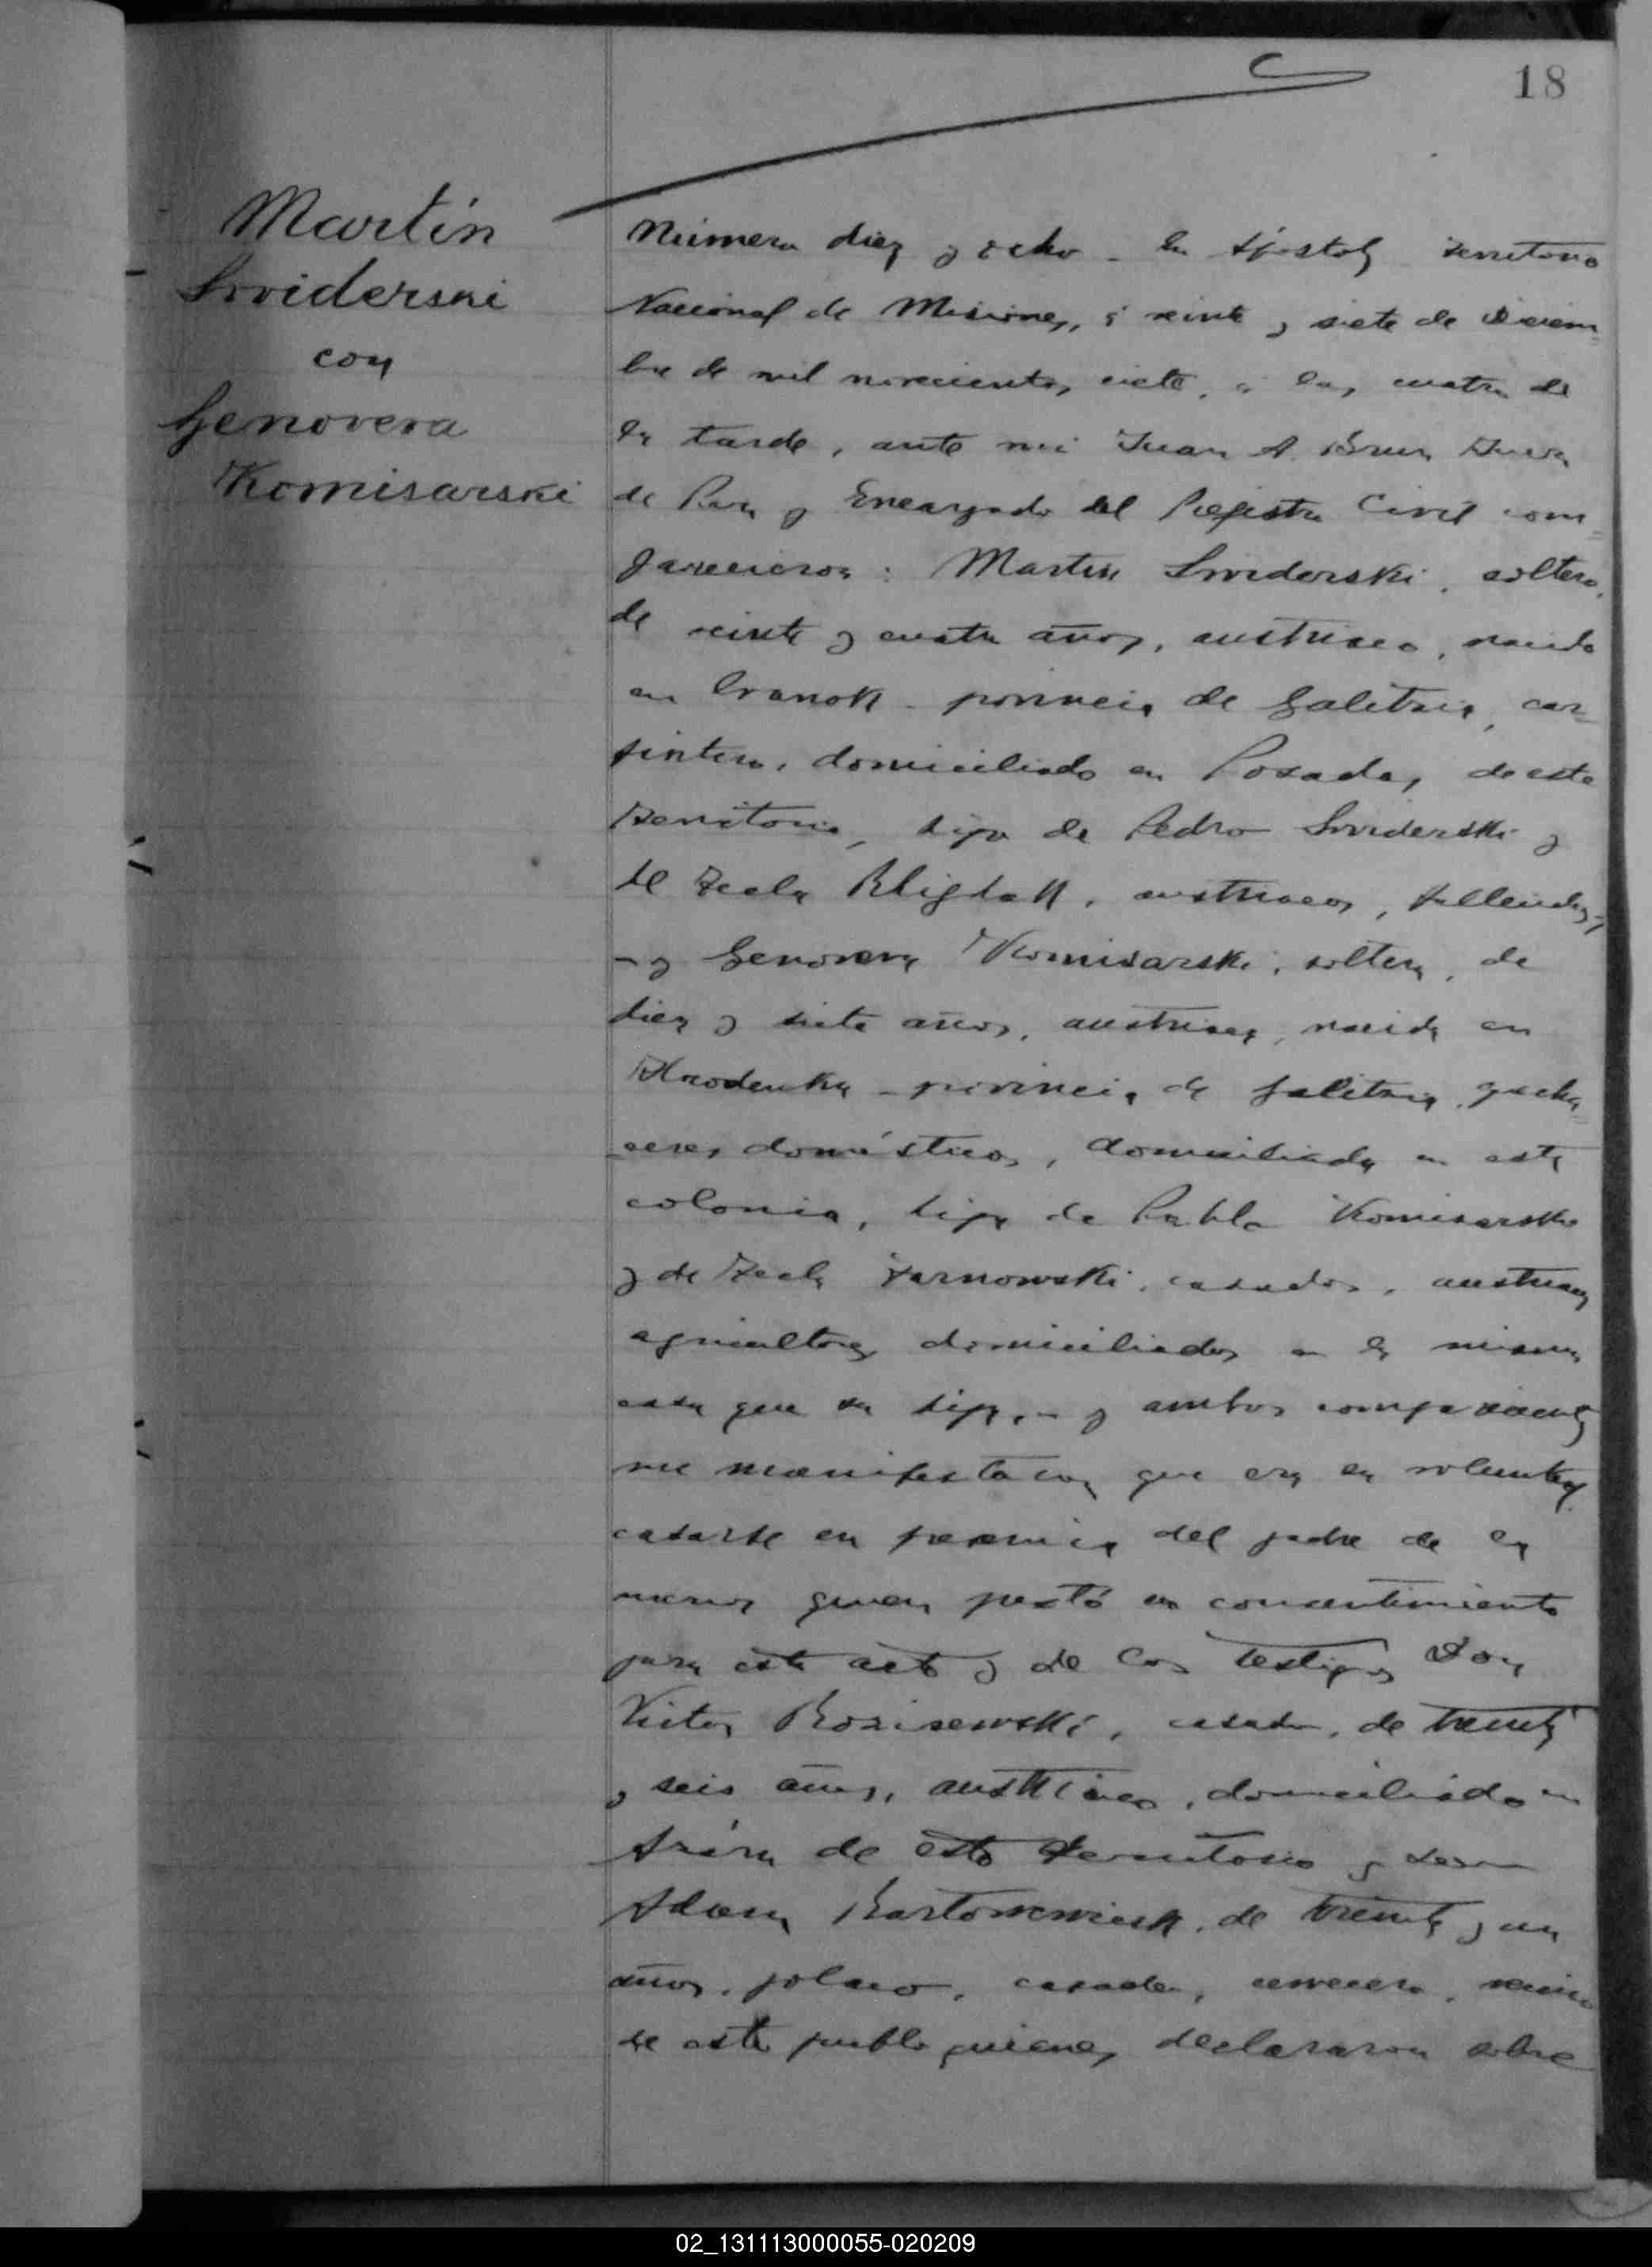 18
Martín
Swiderski
con
Genoveva
Komisarski
Número diez y ocho - En Apóstoles Territorio
Nacional de Misiones, á veinte y siete de Diciem-
bre de mil novecientos siete, á las cuatro de
la tarde, ante mi Juan A. Brun Juez
de Paz y Encargado del Registro Civil com-
parecieron: Martin Swiderski, soltero,
de veinte y cuatro años, austriaco, nacido
en provincia de Galitzia, car-
pintero, domiciliado en Posadas, de este
Territorio, hijo de Pedro Swiderski y
de Tecla austriacos, fallecidos,
- y Genoveva Komisarski, soltera, de
diez y siete años, austriaca, nacida en
- provincia de Galitzia, queha-
ceres domésticos, domiciliada en esta
colonia, hija de Pablo Komisarski
y de Tecla Tarnowski, casados, austriacos
agricultores domiciliados en la misma
casa que su hija, - y ambos comparecientes
me manifestaron que era su voluntad
casarse en presencia del padre de la
menor quien prestó su consentimiento
para este acto y de los testigos Don
Victor casado, de treinta
y seis años, austriaco, domiciliado en
Azára de este Territorio y don
Adam de treinta y un
años, polaco, casado, vecino
de este pueblo quienes declararon sobre
02_131113000055-020209